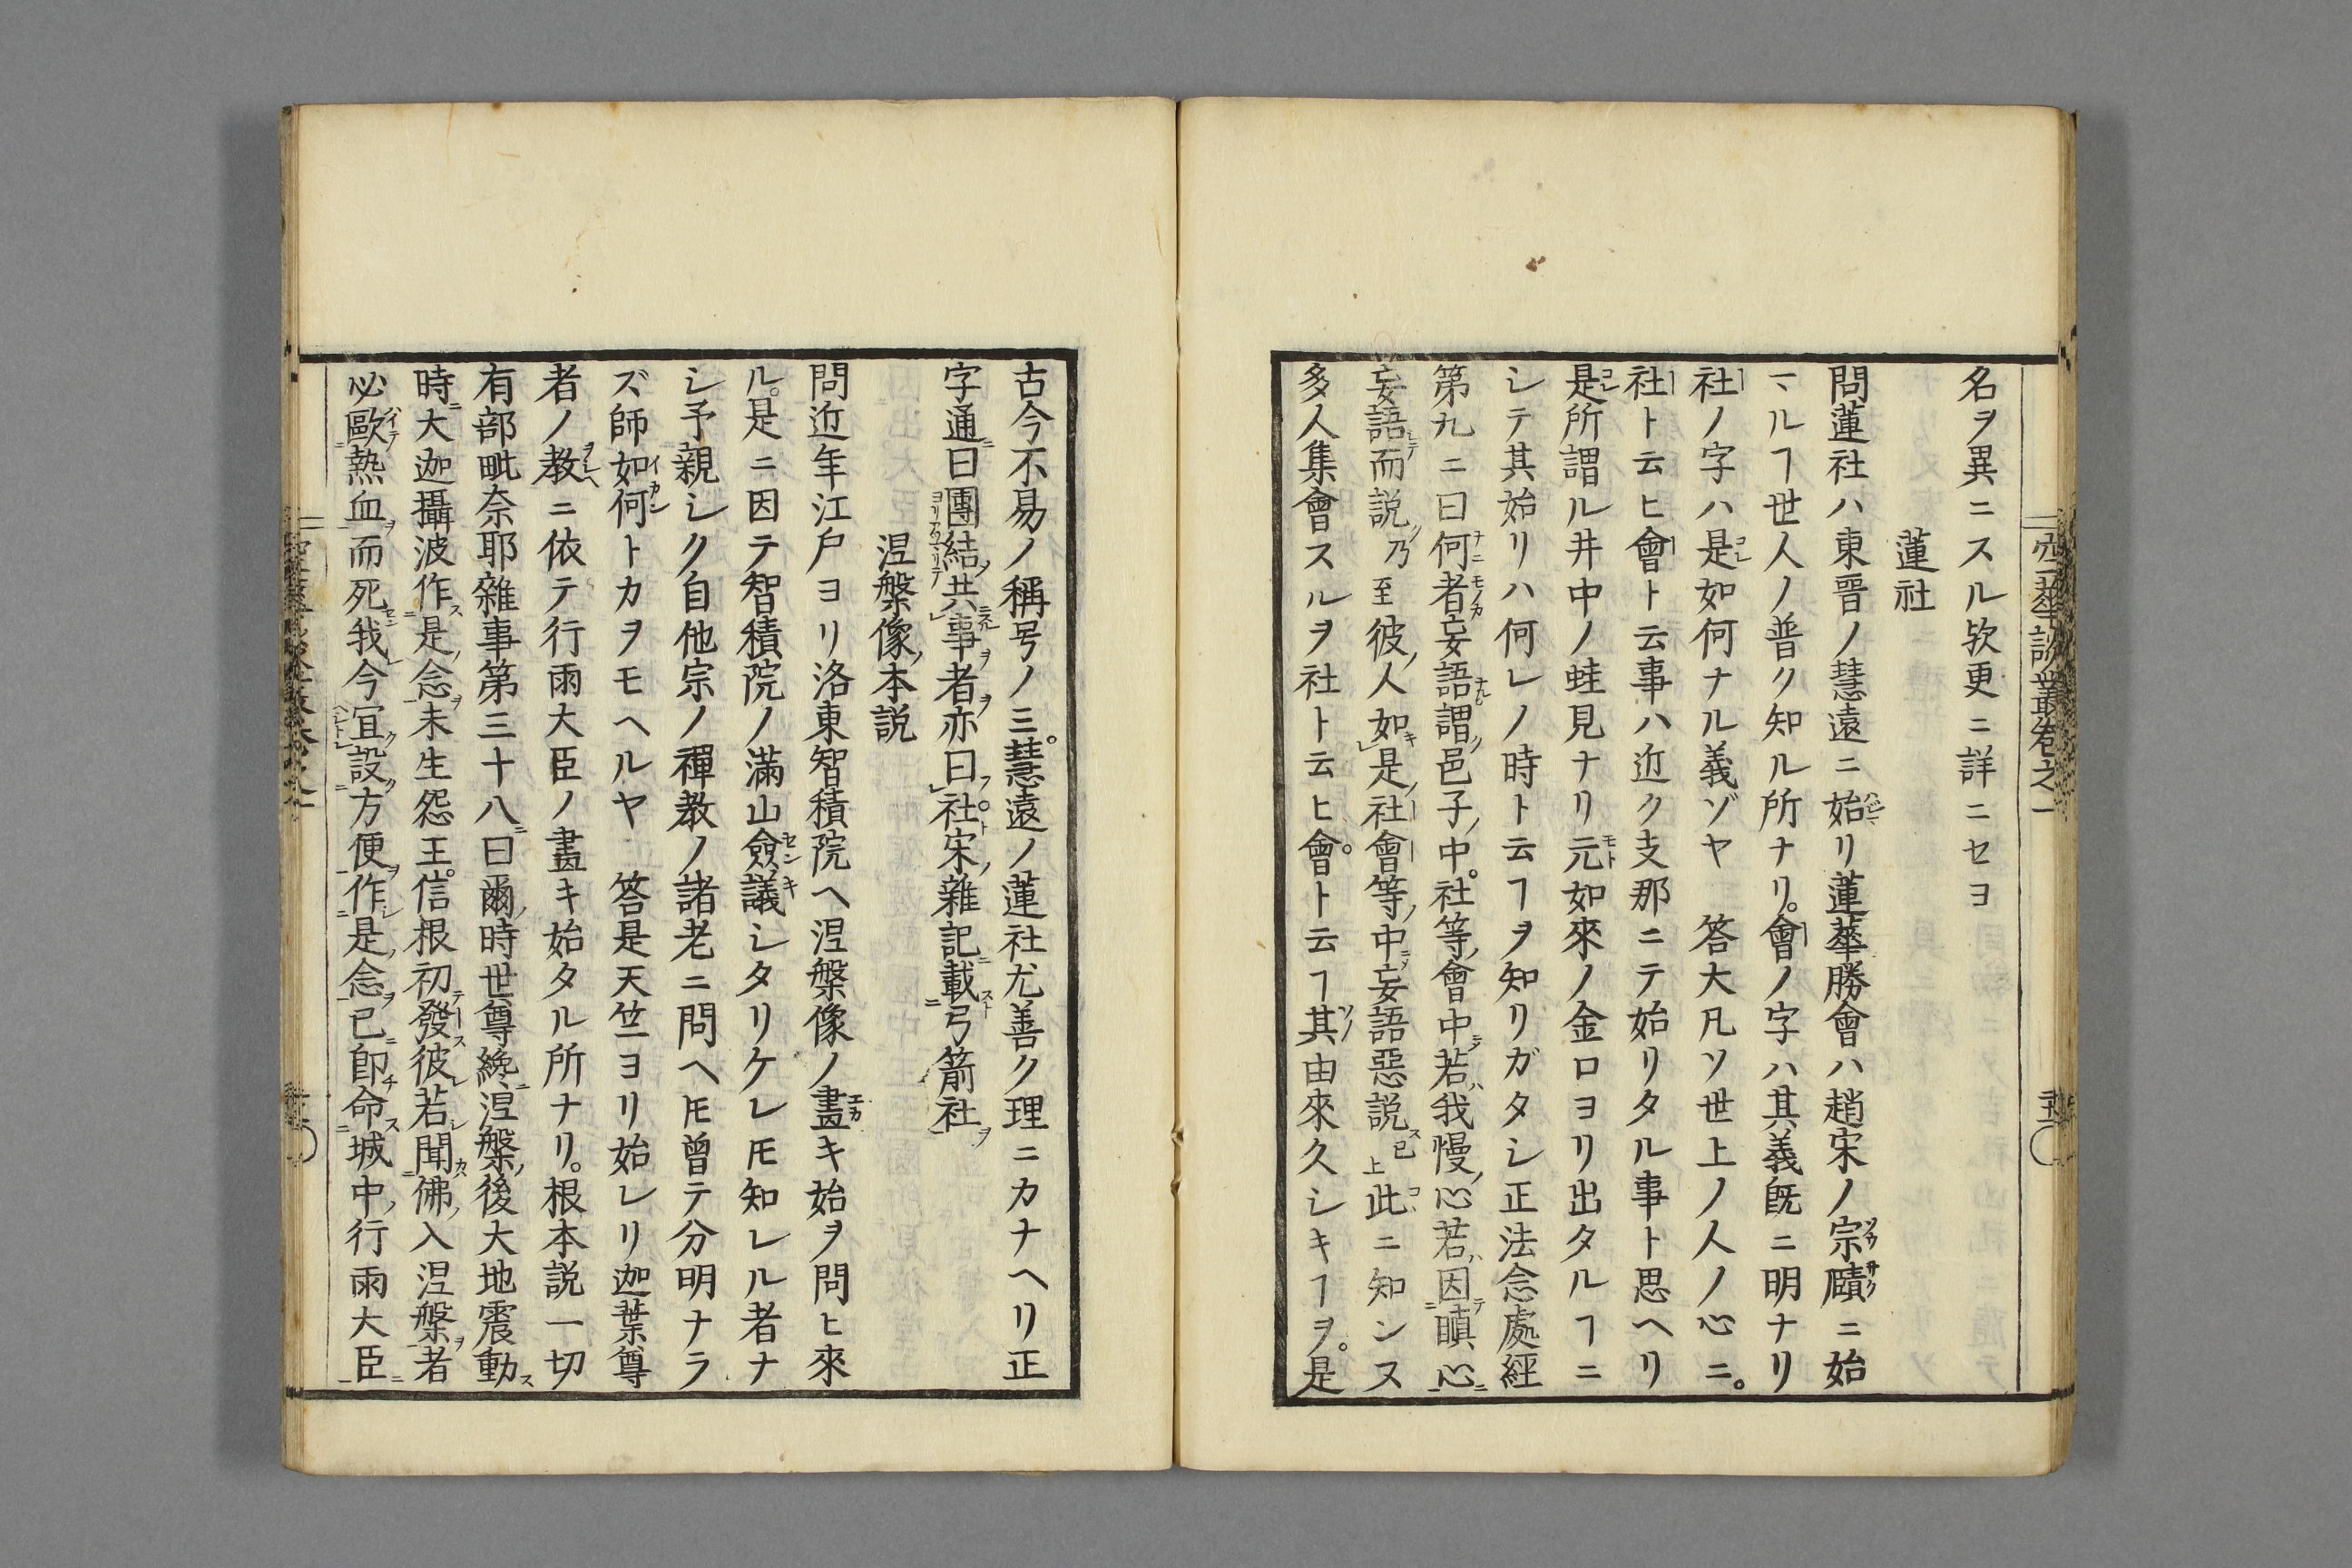 名ヲ異ニスル欤更ニ詳ニセヨ
蓮社
問蓮社ハ東晉ノ慧遠ニ始リ蓮華勝會ハ趙宋ノ宗賾ニ始
マルヿ世人ノ普ク知ル所ナリ。會ノ字ハ其義既ニ明ナリ
社ノ字ハ是如何ナル義ゾヤ 答大凡ソ世上ノ人ノ心ニ。
社ト云ヒ會ト云事ハ近ク支那ニテ始リタル事ト思ヘリ
是所謂ル井中ノ蛙見ナリ元如來ノ金口ヨリ出タルヿニ
シテ其始リハ何レノ時ト云ヿヲ知リガタシ正法念處經
第九ニ曰何者妄語謂邑子ノ中。社等會中若ハ我慢ノ心若ハ因瞋心
妄語而説乃至彼ノ人如是ノ社會等ノ中妄語惡説已上此ニ知ンヌ
多人集會スルヲ社ト云ヒ會。ト云ヿ其由來久シキヿヲ。是
古今不易ノ稱号ノミ。慧遠ノ蓮社尤善ク理ニカナヘリ正
字通曰團結共事者亦曰社宋ノ雜記載弓箭社
涅槃像ノ本説
問近年江戸ヨリ洛東智積院ヘ涅槃像ノ畫キ始ヲ問ヒ來
ル。是ニ因テ智積院ノ滿山僉議シタリケレ𪜈知レル者ナ
シ予親シク自他宗ノ禪教ノ諸老ニ問ヘ𪜈曾テ分明ナラ
ズ師如何トカヲモヘルヤ 答是天竺ヨリ始レリ迦葉尊
者ノ教ニ依テ行雨大臣ノ畫キ始タル所ナリ。根本説一切
有部毗奈耶雜事第三十八曰爾時世尊纔涅槃ノ後大地震動
時大迦攝波作是ノ念未生怨王。信根初發彼若聞佛ノ入涅槃者
必歐熱血而死我今宜設方便作是ノ念已卽命城中ノ行雨大臣